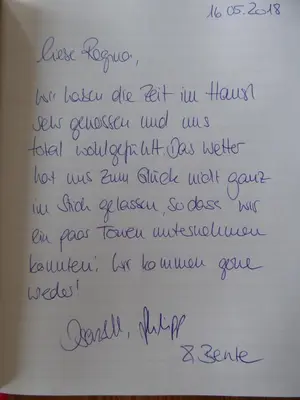 16.05.2018
Liebe Regina,
Wir haben die Zeit im Hausl
sehr genossen und uns
total wohlgefühlt. Das Wetter
hat uns zum Glück nicht ganz
im Stich gelassen, sodass wir
ein paar Touren unternehmen
konnten! Wir kommen gerne
wieder!
Philipp
& Bente